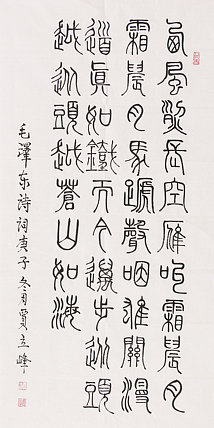 西風烈長空雁叫霜晨月
霜晨月馬蹄聲咽雄關漫
道真如鐵而今邁步從頭
越從頭越蒼山如海
毛澤东詩詞庚子冬月賈立峰